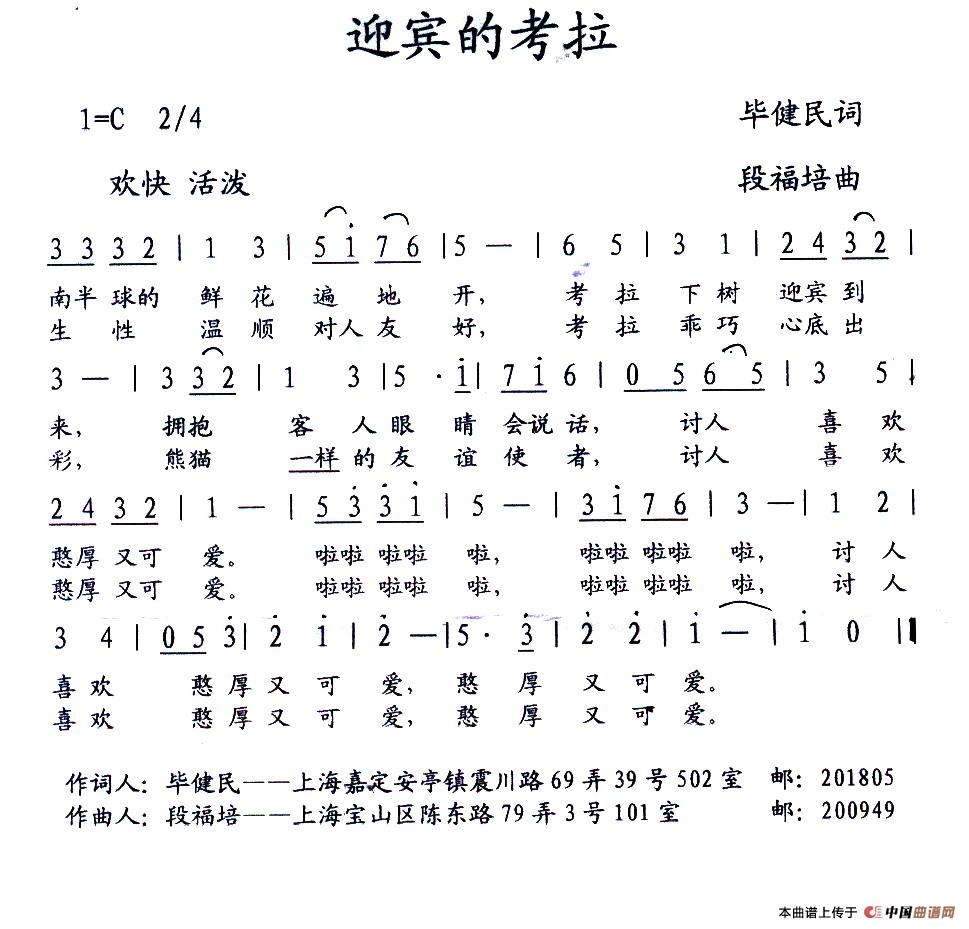 迎宾的考拉
1=C 2/4 毕健民词
欢快 活泼 段福培曲
3 3 3 2 | 1 3 | 5 i̇ 7 6 | 5 — | 6 5 | 3 1 | 2 4 3 2 |
南半 球的 鲜 花 遍 地 开, 考 拉 下 树 迎宾 到
生 性 温 顺 对人 友 好, 考 拉 乖 巧 心底 出
3 — | 3 3 2 | 1 3 | 5 · i̇ | 7 i̇ 6 | 0 5 6 5 | 3 5 |
来, 拥抱 客 人 眼 睛 会说 话, 讨人 喜 欢
彩, 熊猫 一样 的 友 谊 使 者, 讨人 喜 欢
2 4 3 2 | 1 — | 5 3̇ 3̇ i̇ | 5 — | 3 i̇ 7 6 | 3 — | 1 2 |
憨厚 又可 爱。 啦啦 啦啦 啦, 啦啦 啦啦 啦, 讨 人
憨厚 又可 爱。 啦啦 啦啦 啦, 啦啦 啦啦 啦, 讨 人
3 4 | 0 5 3̇ | 2̇ i̇ | 2̇ — | 5 · 3̇ | 2̇ 2̇ | i̇ — | i̇ 0 ‖
喜 欢 憨 厚 又 可 爱, 憨 厚 又 可 爱。
喜 欢 憨 厚 又 可 爱, 憨 厚 又 可 爱。
作词人: 毕健民——上海嘉定安亭镇震川路 69 弄 39 号 502 室 邮: 201805
作曲人: 段福培——上海宝山区陈东路 79 弄 3 号 101 室 邮: 200949
本曲谱上传于 中国曲谱网